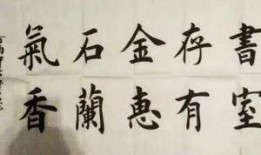 書存金石氣
室有惠蘭香